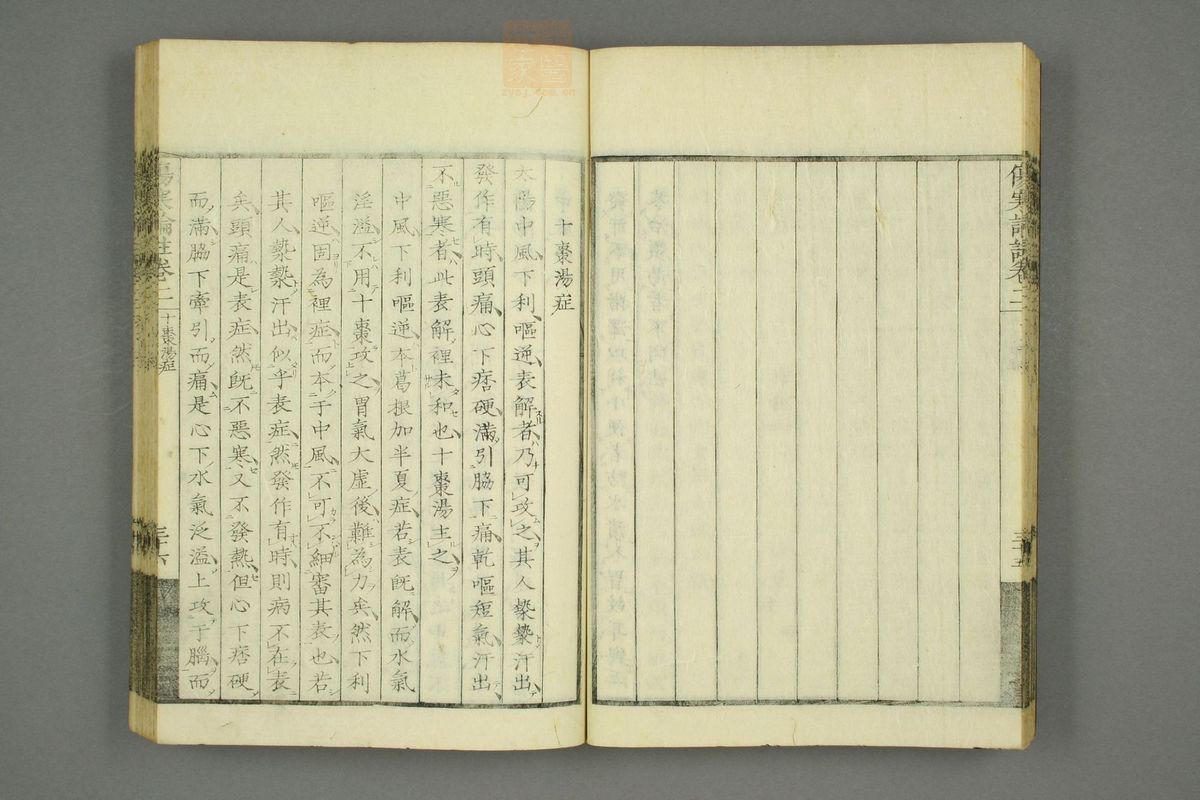 傷寒論註卷二
三十五
十棗湯症
太陽中風下利嘔逆表解者乃可攻之其人漐漐汗出
發作有時頭痛心下痞硬滿引脇下痛乾嘔短氣汗出
不惡寒者此表解裡未和也十棗湯主之
中風下利嘔逆本葛根加半夏症若表既解而水氣
淫溢不用十棗攻之胃氣大虛後難為力矣然下利
嘔逆固為裡症而本于中風不可不細審其表也若
其人漐漐汗出似乎表症然發作有時則病不在表
矣頭痛是表症然既不惡寒又不發熱但心下痞硬
而滿脇下牽引而痛是心下水氣泛溢上攻于腦而
傷寒論註卷二
十棗湯症
三十六